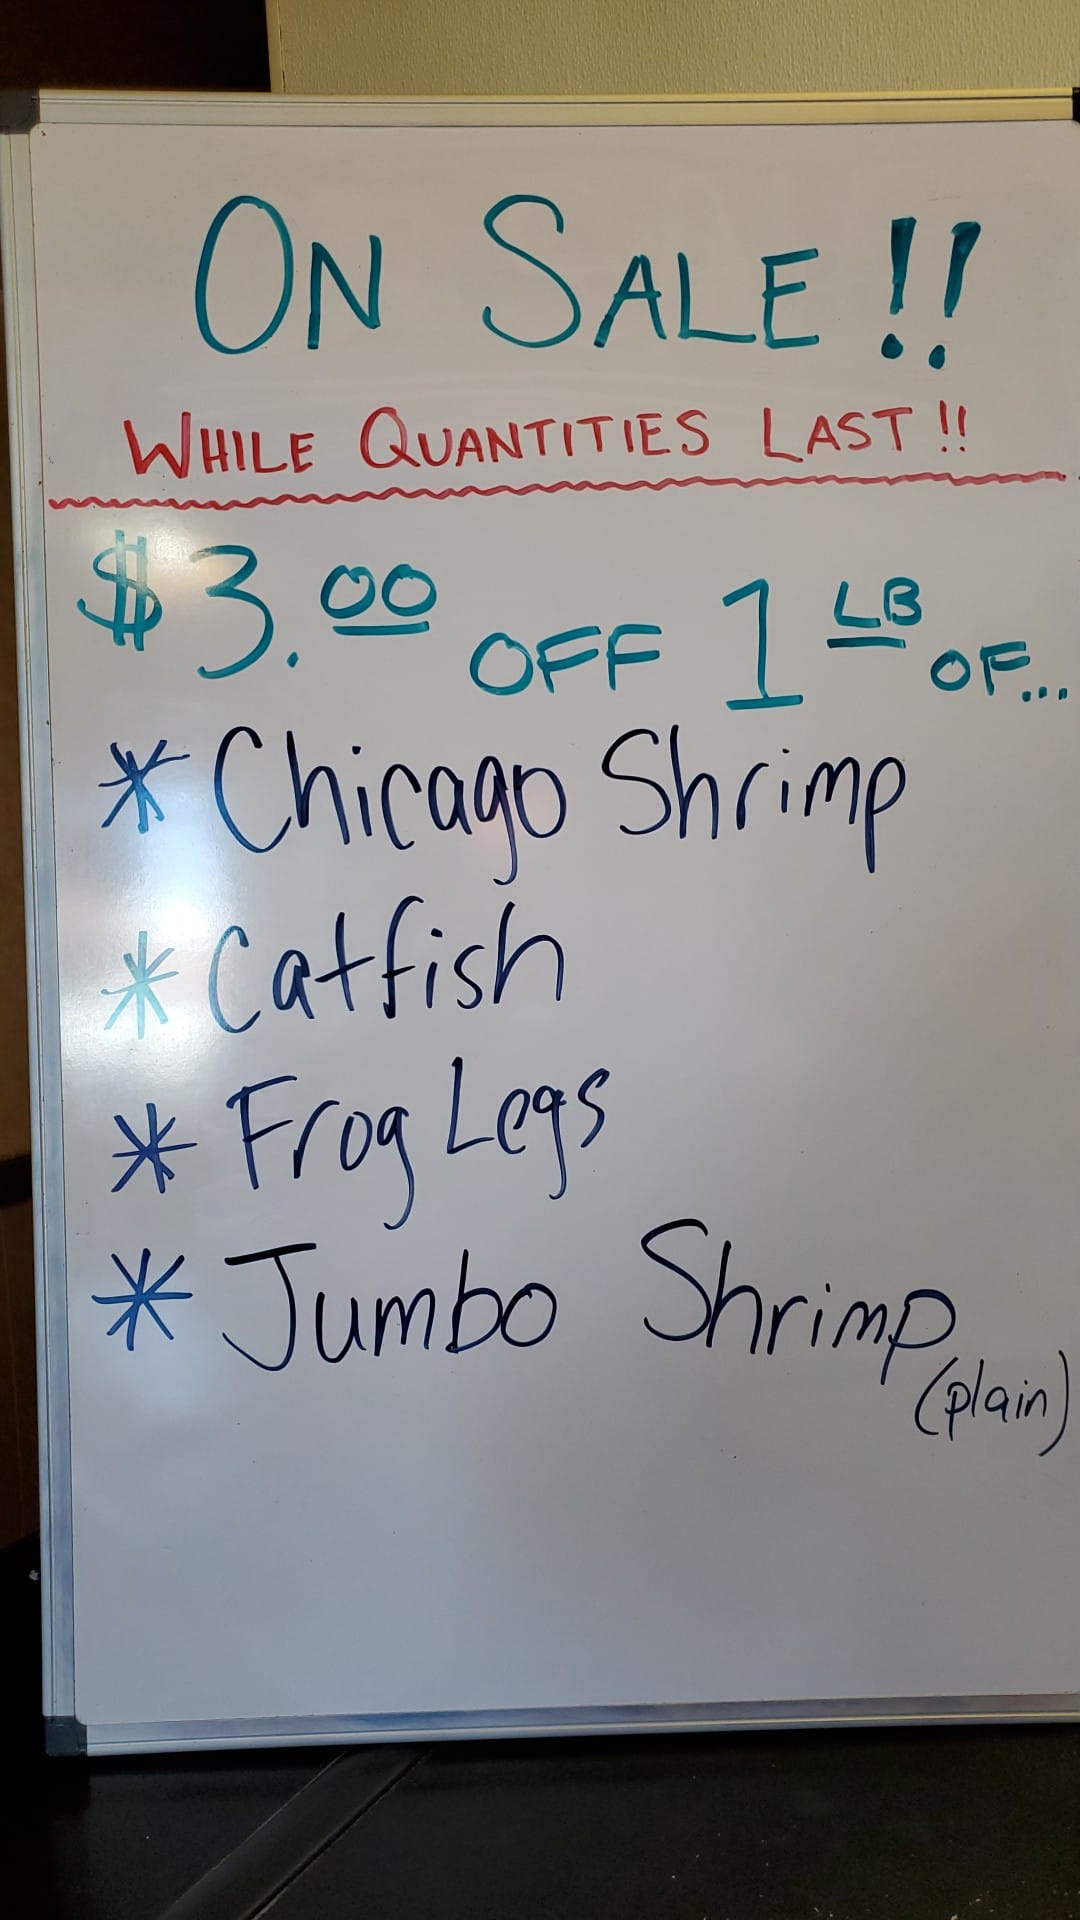 ON SALE!!
WHILE QUANTITIES LAST!!
$3.00 OFF 1 LB OF...
* Chicago Shrimp
* Catfish
* Frog Legs
* Jumbo Shrimp
(plain)